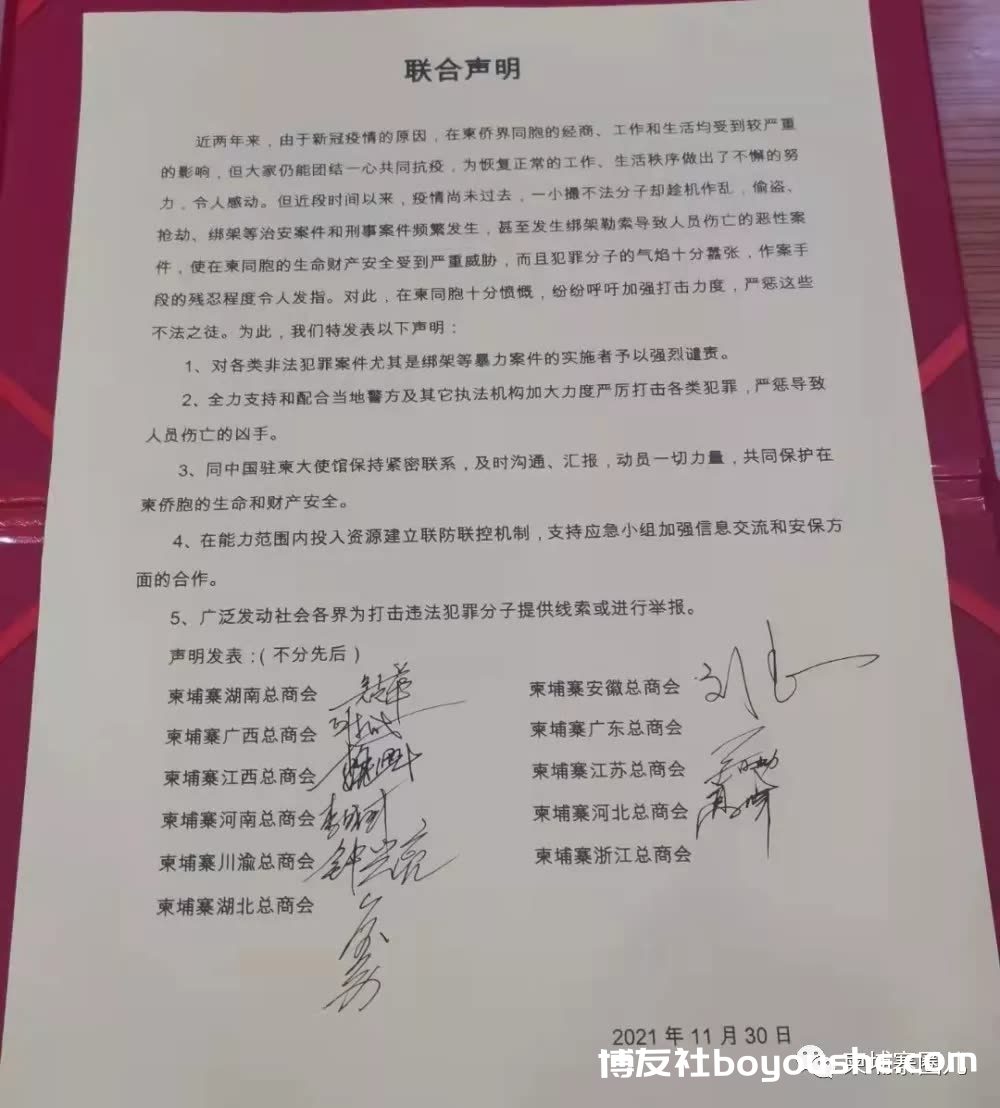 联合声明
近两年来，由于新冠疫情的原因，在柬侨界同胞的经商、工作和生活均受到较严重
的影响，但大家仍能团结一心共同抗疫，为恢复正常的工作、生活秩序做出了不懈的努
力，令人感动。但近段时间以来，疫情尚未过去，一小撮不法分子却趁机作乱，偷盗、
抢劫、绑架等治安案件和刑事案件频繁发生，甚至发生绑架勒索导致人员伤亡的恶性案
件，使在柬同胞的生命财产安全受到严重威胁，而且犯罪分子的气焰十分嚣张，作案手
段的残忍程度令人发指。对此，在柬同胞十分愤慨，纷纷呼吁加强打击力度，严惩这些
不法之徒。为此，我们特发表以下声明：
1、对各类非法犯罪案件尤其是绑架等暴力案件的实施者予以强烈谴责。
2、全力支持和配合当地警方及其它执法机构加大力度严厉打击各类犯罪，严惩导致
人员伤亡的凶手。
3、同中国驻柬大使馆保持紧密联系，及时沟通、汇报，动员一切力量，共同保护在
柬侨胞的生命和财产安全。
4、在能力范围内投入资源建立联防联控机制，支持应急小组加强信息交流和安保方
面的合作。
5、广泛发动社会各界为打击违法犯罪分子提供线索或进行举报。
声明发表：（不分先后）
柬埔寨湖南总商会
柬埔寨安徽总商会
柬埔寨广西总商会
柬埔寨广东总商会
柬埔寨江西总商会
柬埔寨江苏总商会
柬埔寨河南总商会
柬埔寨河北总商会
柬埔寨川渝总商会
柬埔寨浙江总商会
柬埔寨湖北总商会
2021 年 11 月 30 日
博友社boyoushe.com